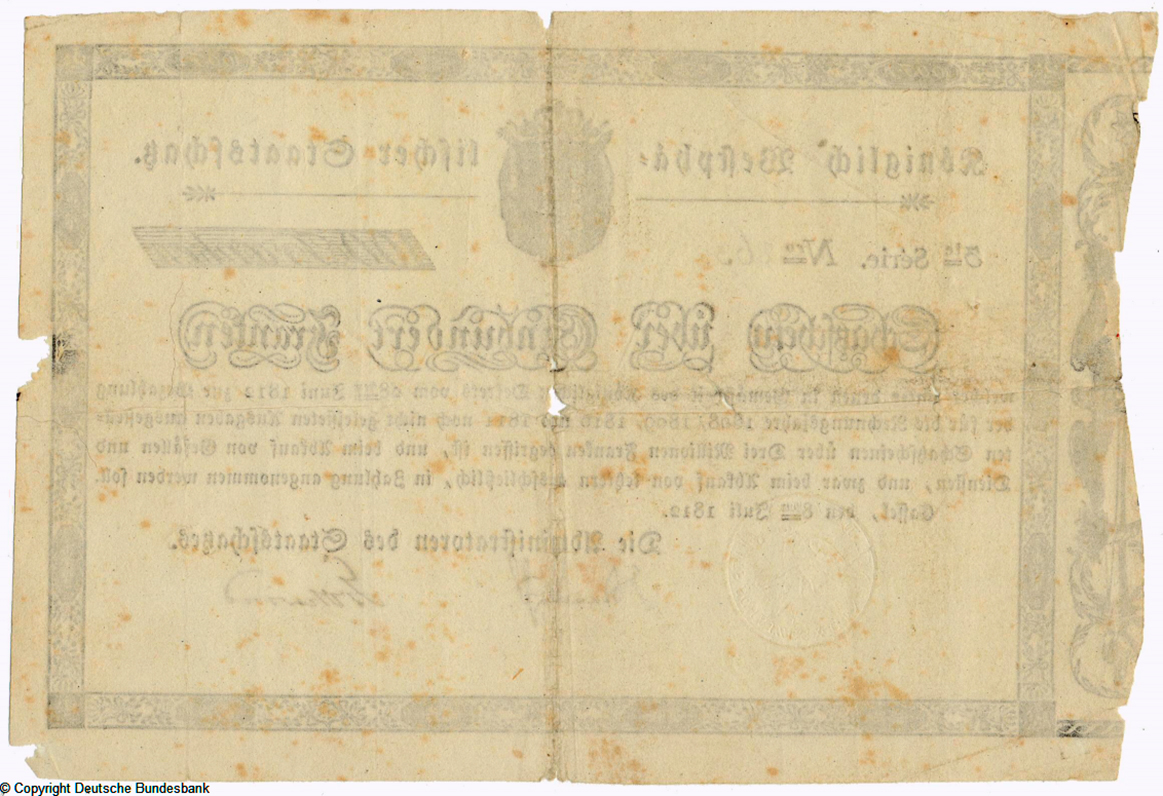 Königlich Westphä-
lischer Staatsschatz.
3te Serie. Nro
Schatzschein über Einhundert Franken
welcher unter denen in Gemäßheit des Königlichen Dekrets vom 28sten Juni 1812 zur Bezahlung
der für die Rechnungsjahre 1808, 1809, 1810 und 1811 noch nicht geleisteten Ausgaben ausgegebe-
nen Schatzscheinen über Drei Millionen Franken begriffen ist, und beim Ankauf von Gefällen und
Diensten, und zwar beim Ankauf von letztern ausschließlich, in Zahlung angenommen werden soll.
Cassel, den 8ten Juli 1812.
Die Administratoren des Staatsschatzes.
© Copyright Deutsche Bundesbank